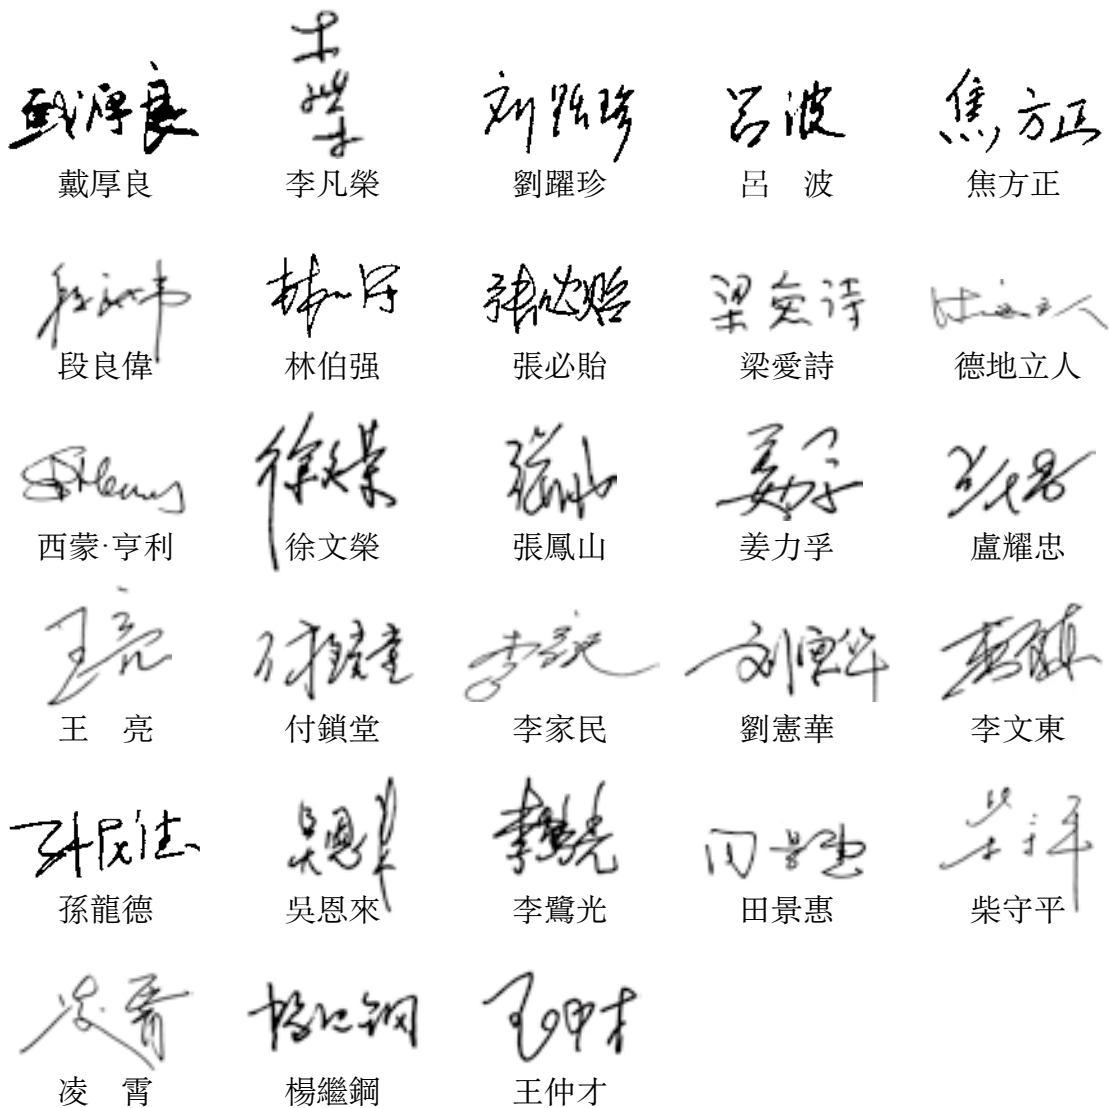 戴厚良 李凡榮 劉躍珍 呂　波 焦方正
段良偉 林伯强 張必貽 梁愛詩 德地立人
西蒙·亨利 徐文榮 張鳳山 姜力孚 盧耀忠
王　亮 付鎖堂 李家民 劉憲華 李文東
孫龍德 吳恩來 李鷺光 田景惠 柴守平
凌　霄 楊繼鋼 王仲才